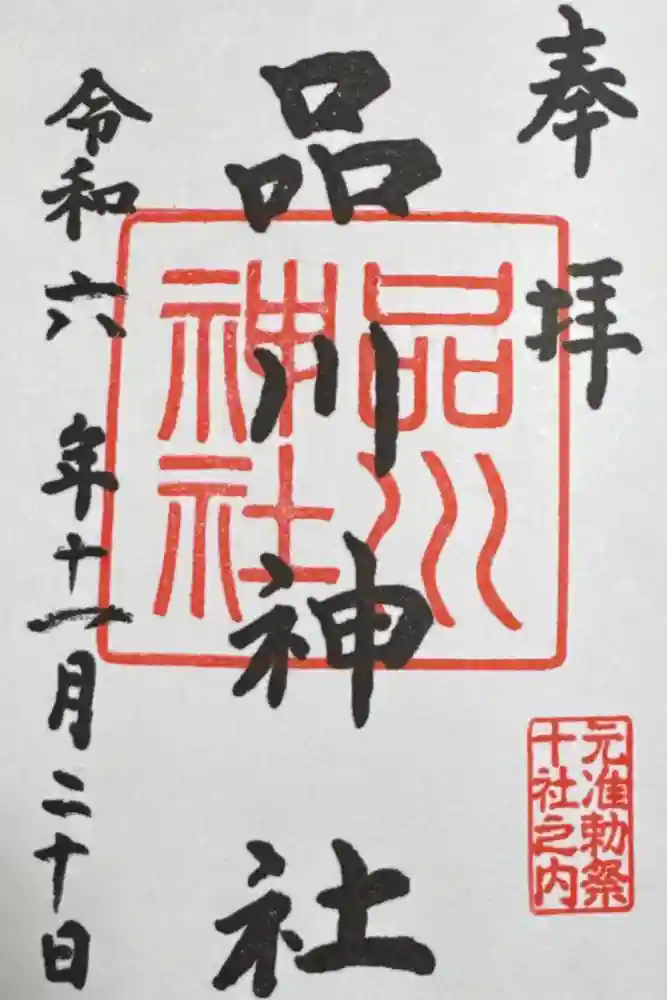 奉拝
品川神社
品川
神社
元准勅祭
十社之内
令和六年十一月二十日